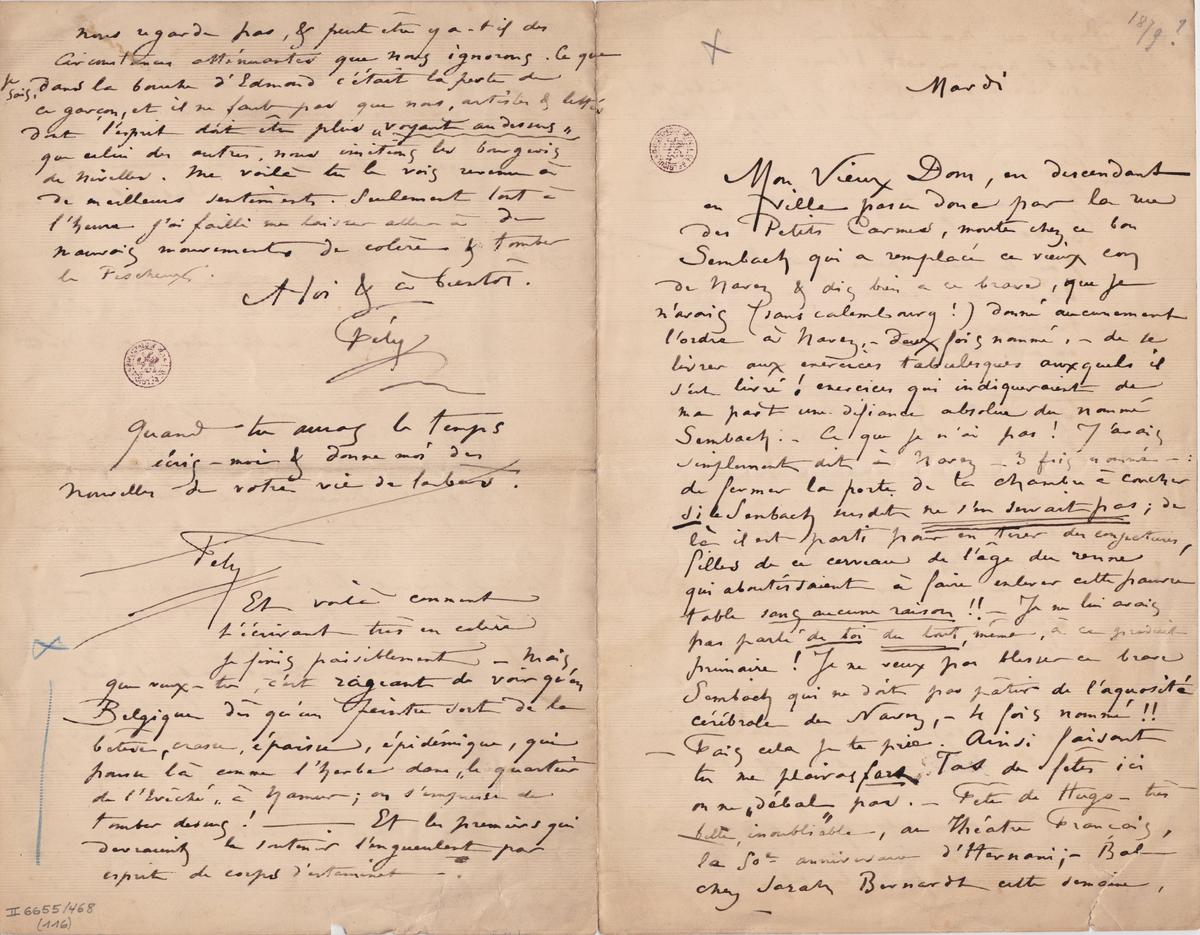 nous regarde pas, & peut être y a-t-il des
circonstances atténuantes que nous ignorons. Ce que
je sais, dans la bouche d'Edmond c'était la perte de
ce garçon, et il ne faut pas que nous, artistes & lettrés
dont l'esprit doit être plus „voyant au dessus„
que celui des autres, nous imitions les bourgeois
de Nivelles. Me voilà tu le vois revenu à
de meilleurs sentiments. Seulement tout à
l'heure j'ai failli me laisser aller à de
mauvais mouvements de colère & tomber
le
A toi & à bientôt.
Fély
Quand tu auras le temps
écris-moi & donne moi des
nouvelles de votre vie de labeur.
Fély
Et voilà comment
t'écrivant très en colère
je finis paisiblement — Mais
que veux-tu, c'est rageant de voir qu'en
Belgique dès qu'un peintre sort de la
bêtise, crasse, épaisse, épidémique, qui
pousse là comme l'herbe dans „le quartier
de l'Evêché„ à Namur; on s'empresse de
tomber dessus! — Et les premiers qui
devraient le soutenir l'engueulent par
esprit de corps d'estaminet —.
II 6655/468
(116)
1879?
Mardi
Mon Vieux Dom, en descendant
en ville passe donc par la rue
des Petits Carmes, monte chez ce bon
Sembach qui a remplacé ce vieux con
de Navez & dis bien à ce brave, que je
n'avais (sans calembourg!) donné aucunement
l'ordre à Navez, – deux fois nommé, – de se
livrer aux exercices tabulesques auxquels il
s'est livré! exercices qui indiqueraient de
ma part une défiance absolue du nommé
Sembach. – Ce que je n'ai pas! J'avais
simplement dit à Navez – 3 fois nommé – :
de fermer la porte de ta chambre à coucher
si le Sembach susdit ne s'en servait pas; de
là il est parti pour en tirer des conjectures,
filles de ce cerveau de l'âge du renne
qui aboutissaient à faire enlever cette pauvre
table sans aucune raison!! – Je ne lui avais
pas parlé de toi du tout, même, à ce produit
primaire! Je ne veux pas blesser ce brave
Sembach qui ne doit pas pâtir de l'aquosité
cérébrale de Navez, – 4 fois nommé!!
– Fais cela je te prie. Ainsi faisant
tu me plairas fort. Tas de fêtes ici
on ne „débal„ pas. – Fête de Hugo – très
belle, inoubliable, au Théâtre Français,
la 50e anniversaire d'Hernani; – Bal
chez Sarah Bernardt cette semaine,